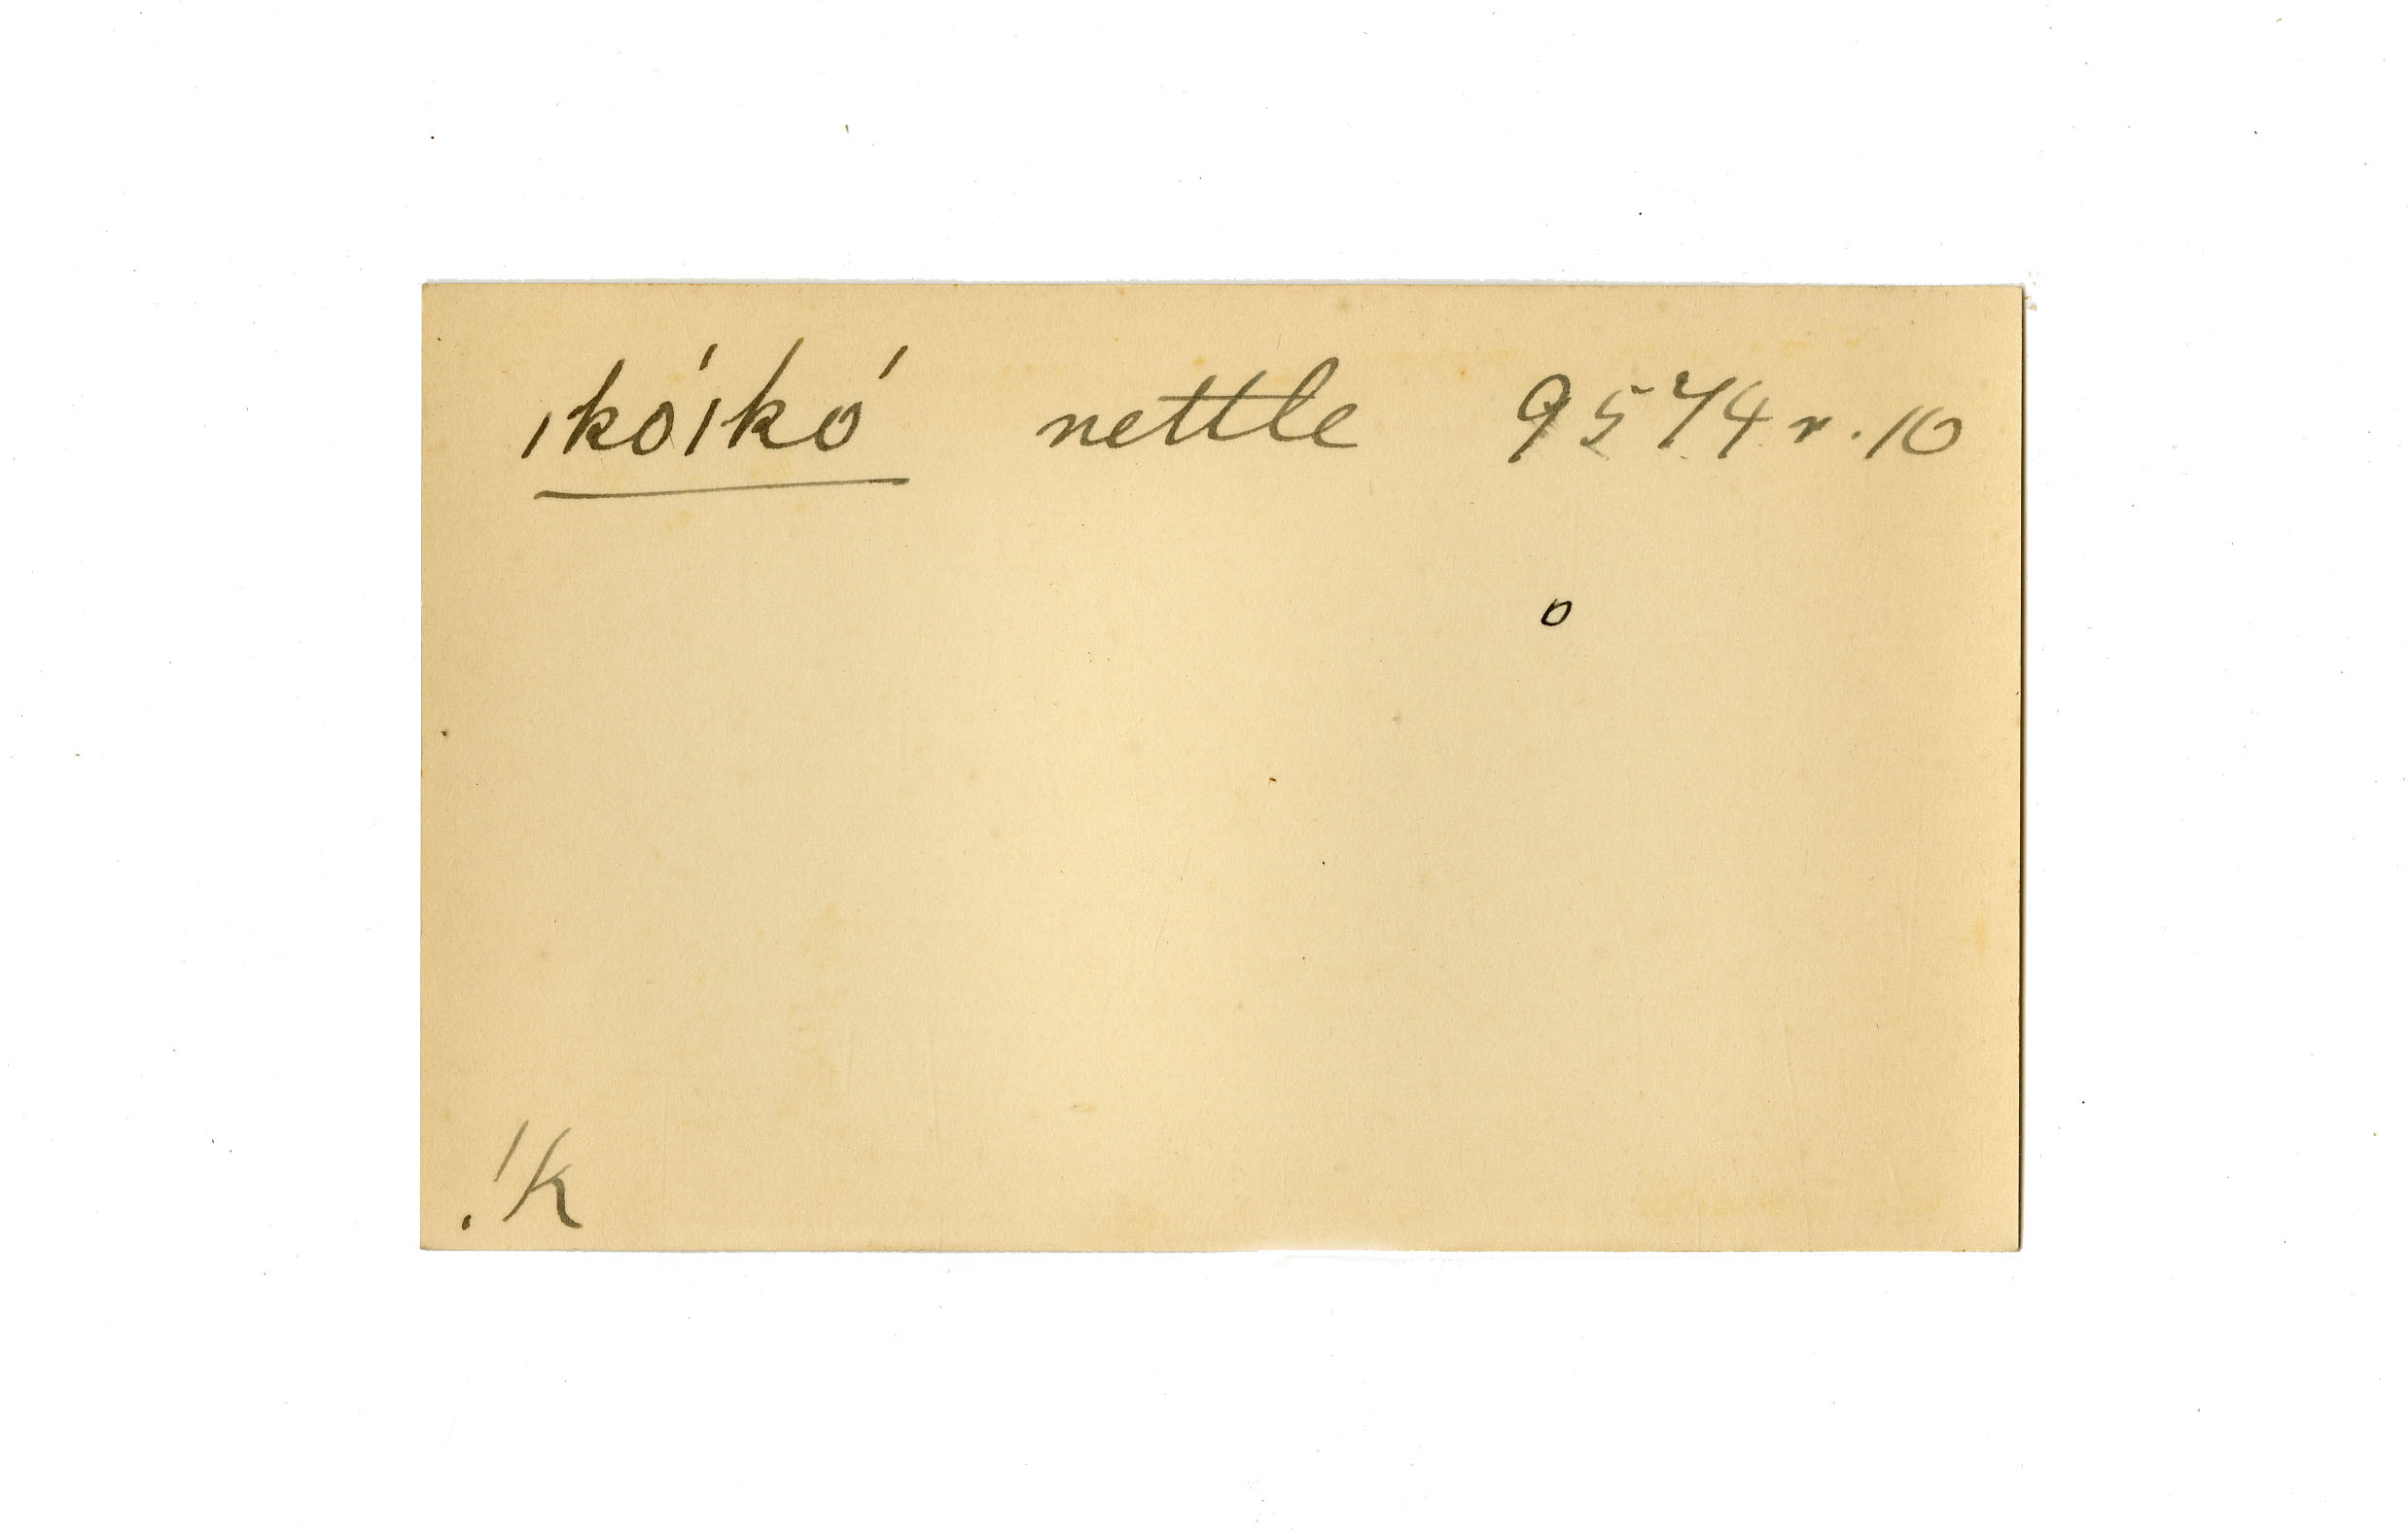 ıkóıkó nettle 9574 r. 10
o
!k